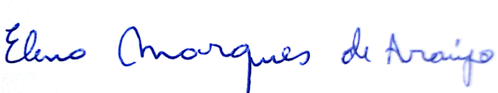 Elena Marques de Araújo